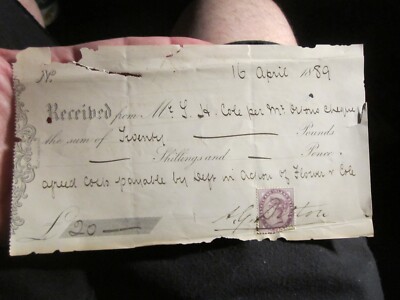 No. 16 April 1889
Received from Mr. S. H. Cole per Mr. Cheque
the sum of Twenty Pounds
Shillings and Pence
agreed Costs payable by Deft in Action of Flower v Cole
£ 20